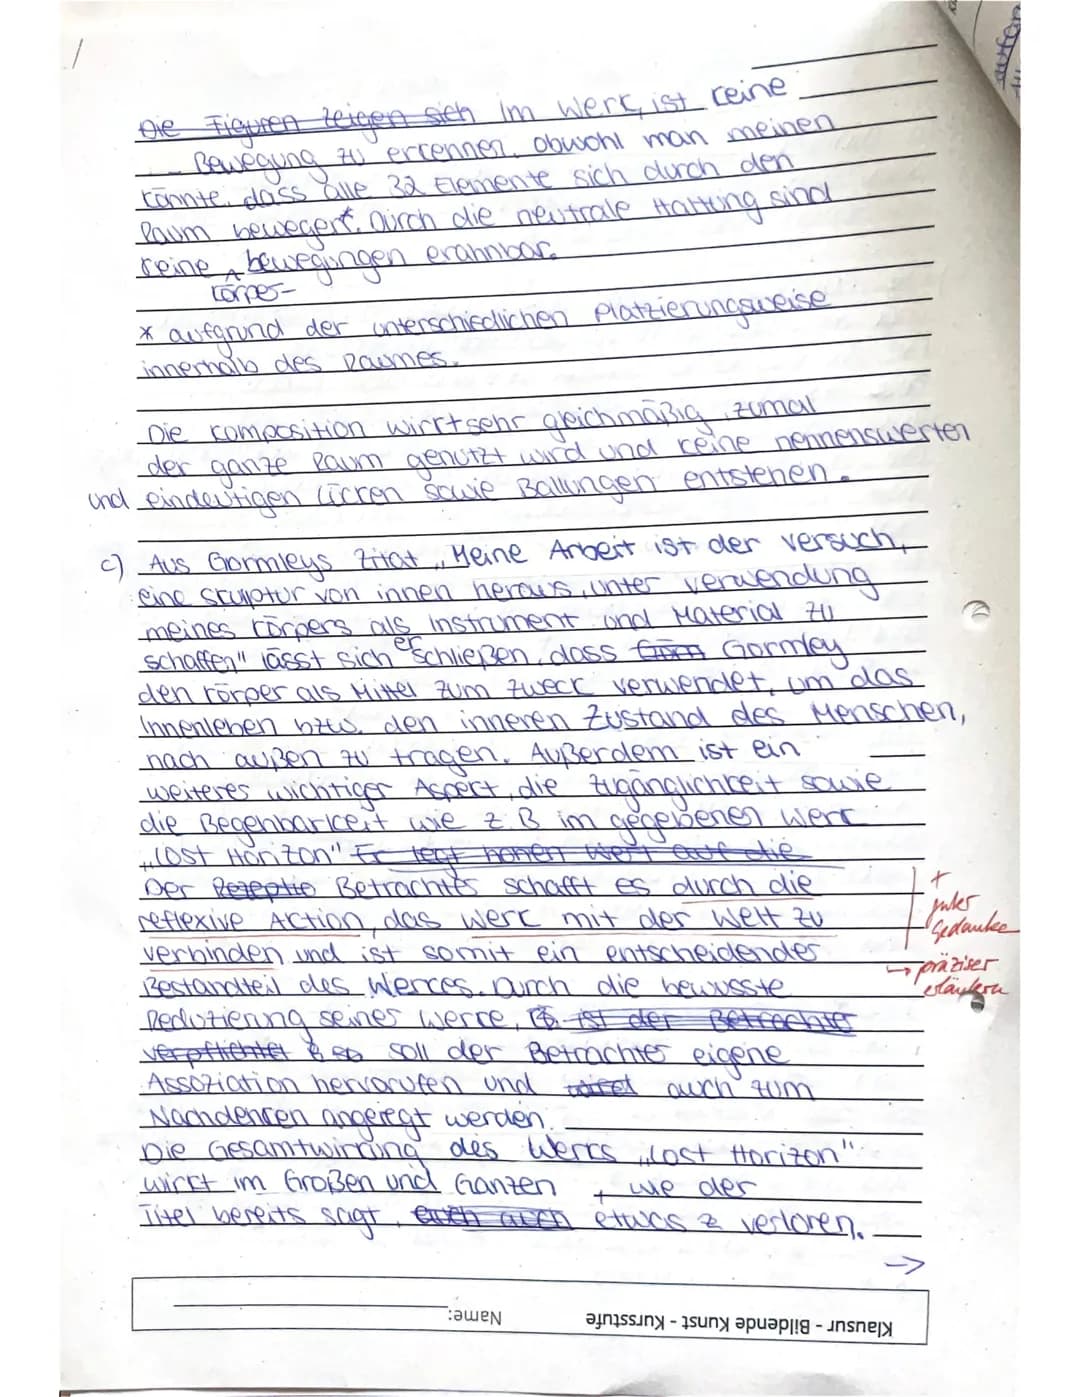 Die Figuren zeigen sich Im Werk, ist keine
Bewegung zu erkennen, obwohl man meinen
könnte, dass alle 32 Elemente sich durch den
Raum bewegen*. Durch die neutrale Haltung sind
keine bewegungen erahnbar.
körper-
* aufgrund der unterschiedlichen Platzierungsweise
innerhalb des Raumes.
Die Komposition wirkt sehr gleichmäßig, zumal
der ganze Raum genutzt wird und keine nennenswerten
und eindeutigen Lücken sowie Ballungen entstehen.
c) Aus Gormleys Zitat „Meine Arbeit ist der Versuch,
eine Skulptur von innen heraus, unter Verwendung
meines Körpers als Instrument und Material zu
schaffen" lässt sich erschließen, dass Gormley
den Körper als Mittel zum Zweck verwendet, um das
Innenleben bzw. den inneren Zustand des Menschen,
nach außen zu tragen. Außerdem ist ein
weiteres wichtiger Aspekt, die Zugänglichkeit sowie
die Begehbarkeit wie z.B im gegebenen Werk
„Lost Horizon" Er legt hohen Wert auf die
Der Rezeptio Betrachter schafft es durch die
reflexive Aktion, das Werk mit der Welt zu
verbinden und ist somit ein entscheidendes
Bestandteil des Werkes. Durch die bewusste
Reduzierung seiner Werke, ist der Betrachter
verpflichtet so soll der Betrachter eigene
Assoziation hervorrufen und auch zum
Nachdenken angeregt werden.
Die Gesamtwirkung des Werks „Lost Horizon"
wirkt im Großen und Ganzen, wie der
Titel bereits sagt, auch etwas verloren.
→
+
guter
Gedanke
→ präziser
erläutern
Klausur - Bildende Kunst - Kursstufe
Name: